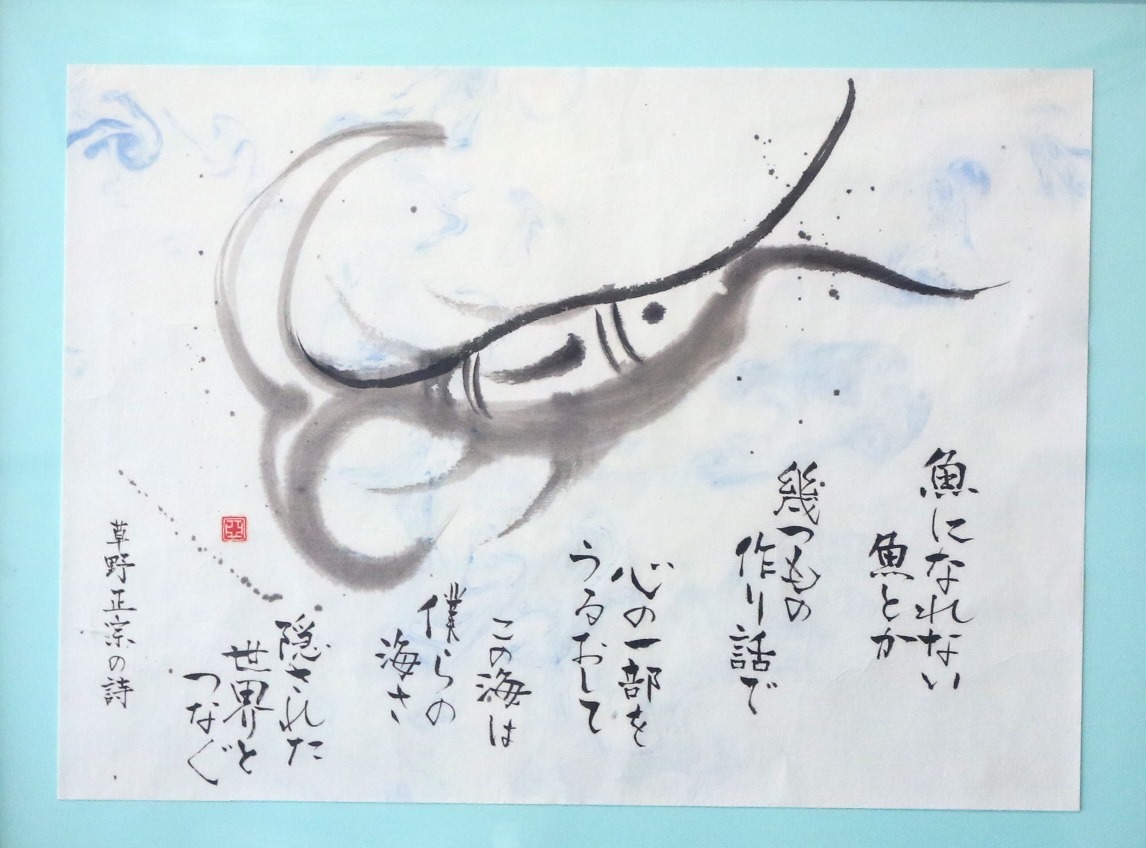 魚になれない
魚とか
幾つもの
作り話で
心の一部を
うるおして
この海は
僕らの
海さ
隠された
世界と
つなぐ
草野正宗の詩
亞